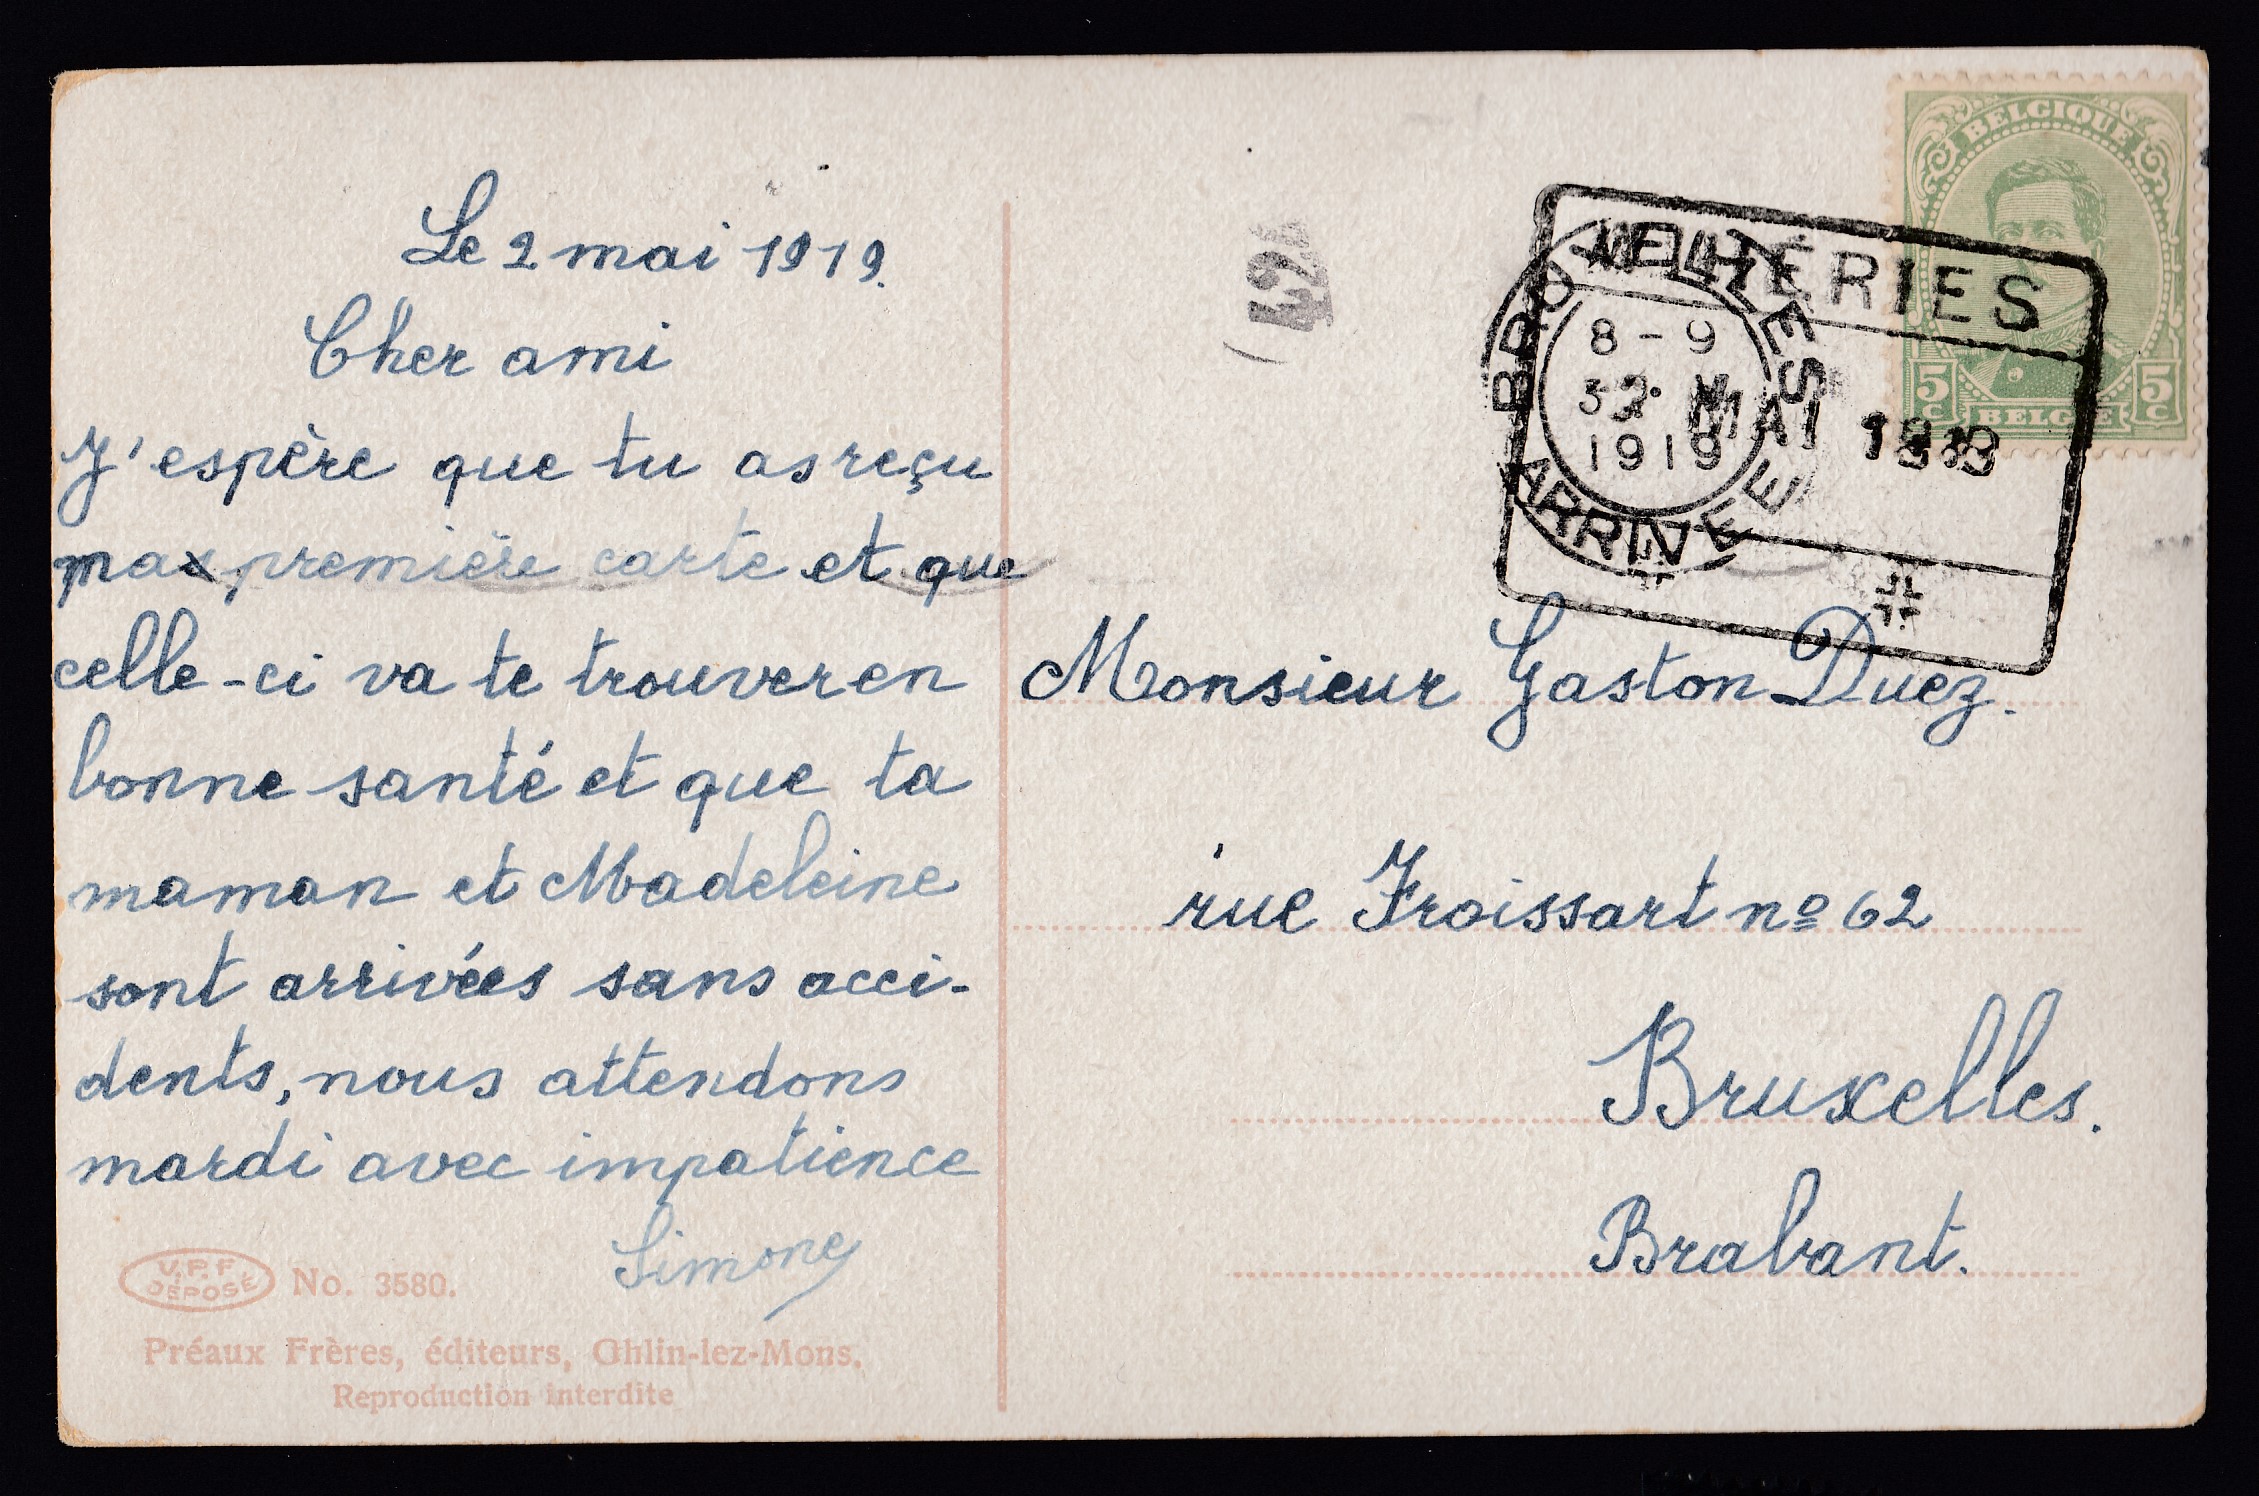 Le 2 mai 1919.
Cher ami
J'espère que tu as reçu
ma première carte et que
celle-ci va te trouver en
bonne santé et que ta
maman et Madeleine
sont arrivées sans acci-
dents, nous attendons
mardi avec impatience
Simone
V.P.F.
DÉPOSÉ
No. 3580.
Préaux Frères, éditeurs, Ghlin-lez-Mons.
Reproduction interdite
BELGIQUE
5c
BELGIE
5c
BRUXELLES
8-9
1919
ARRIVÉE
MAI
Monsieur Gaston Duez.
rue Froissart nº 62
Bruxelles.
Brabant.